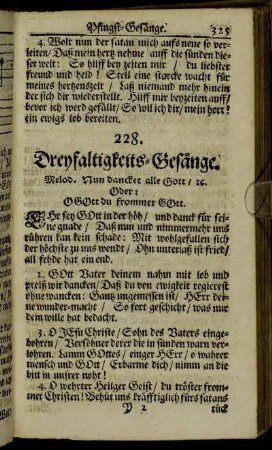 Pfingst-Gesänge. 325
4. Wolt nun der satan mich aufs neue so ver-
leiten/ Daß mein hertz nehme auff die sünden die-
ser welt: So hilff bey zeiten mir / du liebster
freund und held! Stell eine starcke wacht für
meines hertzens zelt / Laß niemand mehr hinein
der sich dir wiederstellt. Hilff mir bey zeiten auff/
bevor ich werd gefällt/ So wil ich dir/ mein hort!
ein ewigs lob bereiten.
228.
Dreyfaltigkeits-Gesänge.
Melod. Nun dancket alle Gott/ ꝛc.
Oder:
O GOtt du frommer GOtt.
EHr sey GOtt in der höh/ und danck für sei-
ne gnade / Daß nun und nimmermehr uns
rühren kan kein schade: Mit wohlgefallen sich
der höchste zu uns wendt / Ohn unterlaß ist fried/
all fehde hat ein end.
2. GOtt Vater deinem nahm mit lob und
preiß wir dancken/ Daß du von ewigkeit regierest
ohne wancken: Gantz ungemessen ist/ HErr dei-
ne wunder-macht / So fort geschicht/ was nur
dein wille hat bedacht.
3. O JEsu Christe/ Sohn des Vaters einge-
bohren/ Versöhner derer die in sünden warn ver-
lohren. Lamm GOttes/ einger HErr/ o wahrer
mensch und GOtt/ Erbarme dich/ nimm an die
bitt in unsrer noht!
4. O wehrter Heilger Geist/ du tröster from-
mer Christen! Behüt uns kräfftiglich fürs satans
Y 2 tück